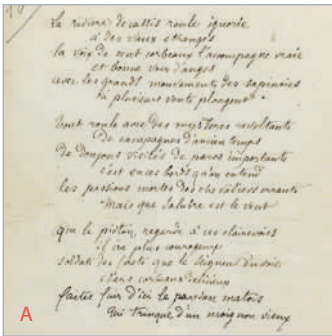 La rivière de cassis roule ignorée
à des vaux étranges
la voix de cent corbeaux l'accompagne vraie
et bonne voix d'anges
avec les grands mouvements des sapinaies
où plusieurs vents plongent

Tout roule avec des mystères révoltants
De campagnes d'ancien temps
De donjons visités de parcs importants
c'est en ces bords qu'on entend
les passions mortes des chevaliers errants
Mais que salubre est le vent

que le piéton regarde à ces clairevoies
il ira plus courageux
soldats des forêts que le Seigneur envoie
chers corbeaux délicieux
faites fuir d'ici le paysan matois
Qui trinque d'un moignon vieux
A